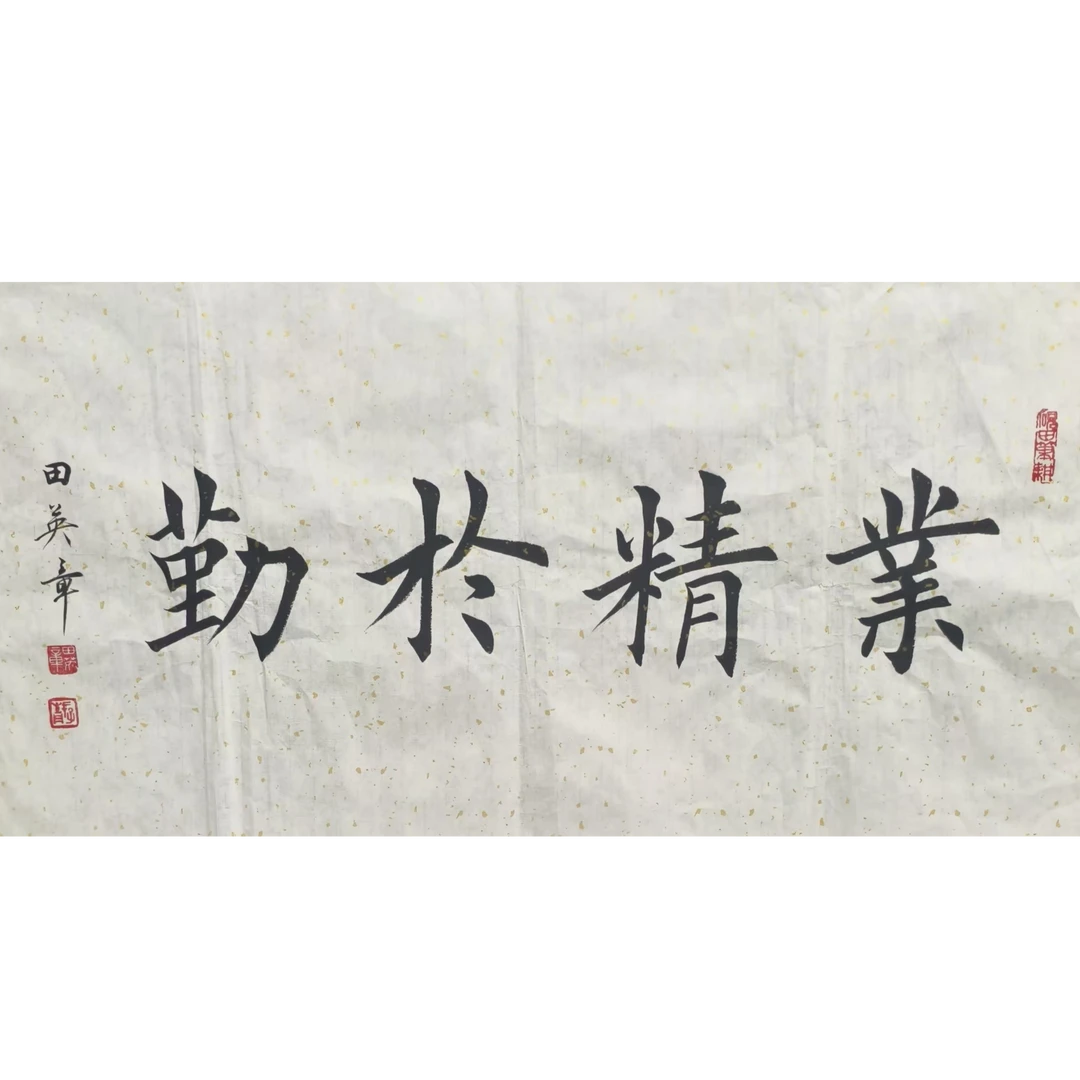 業精於勤
田英章